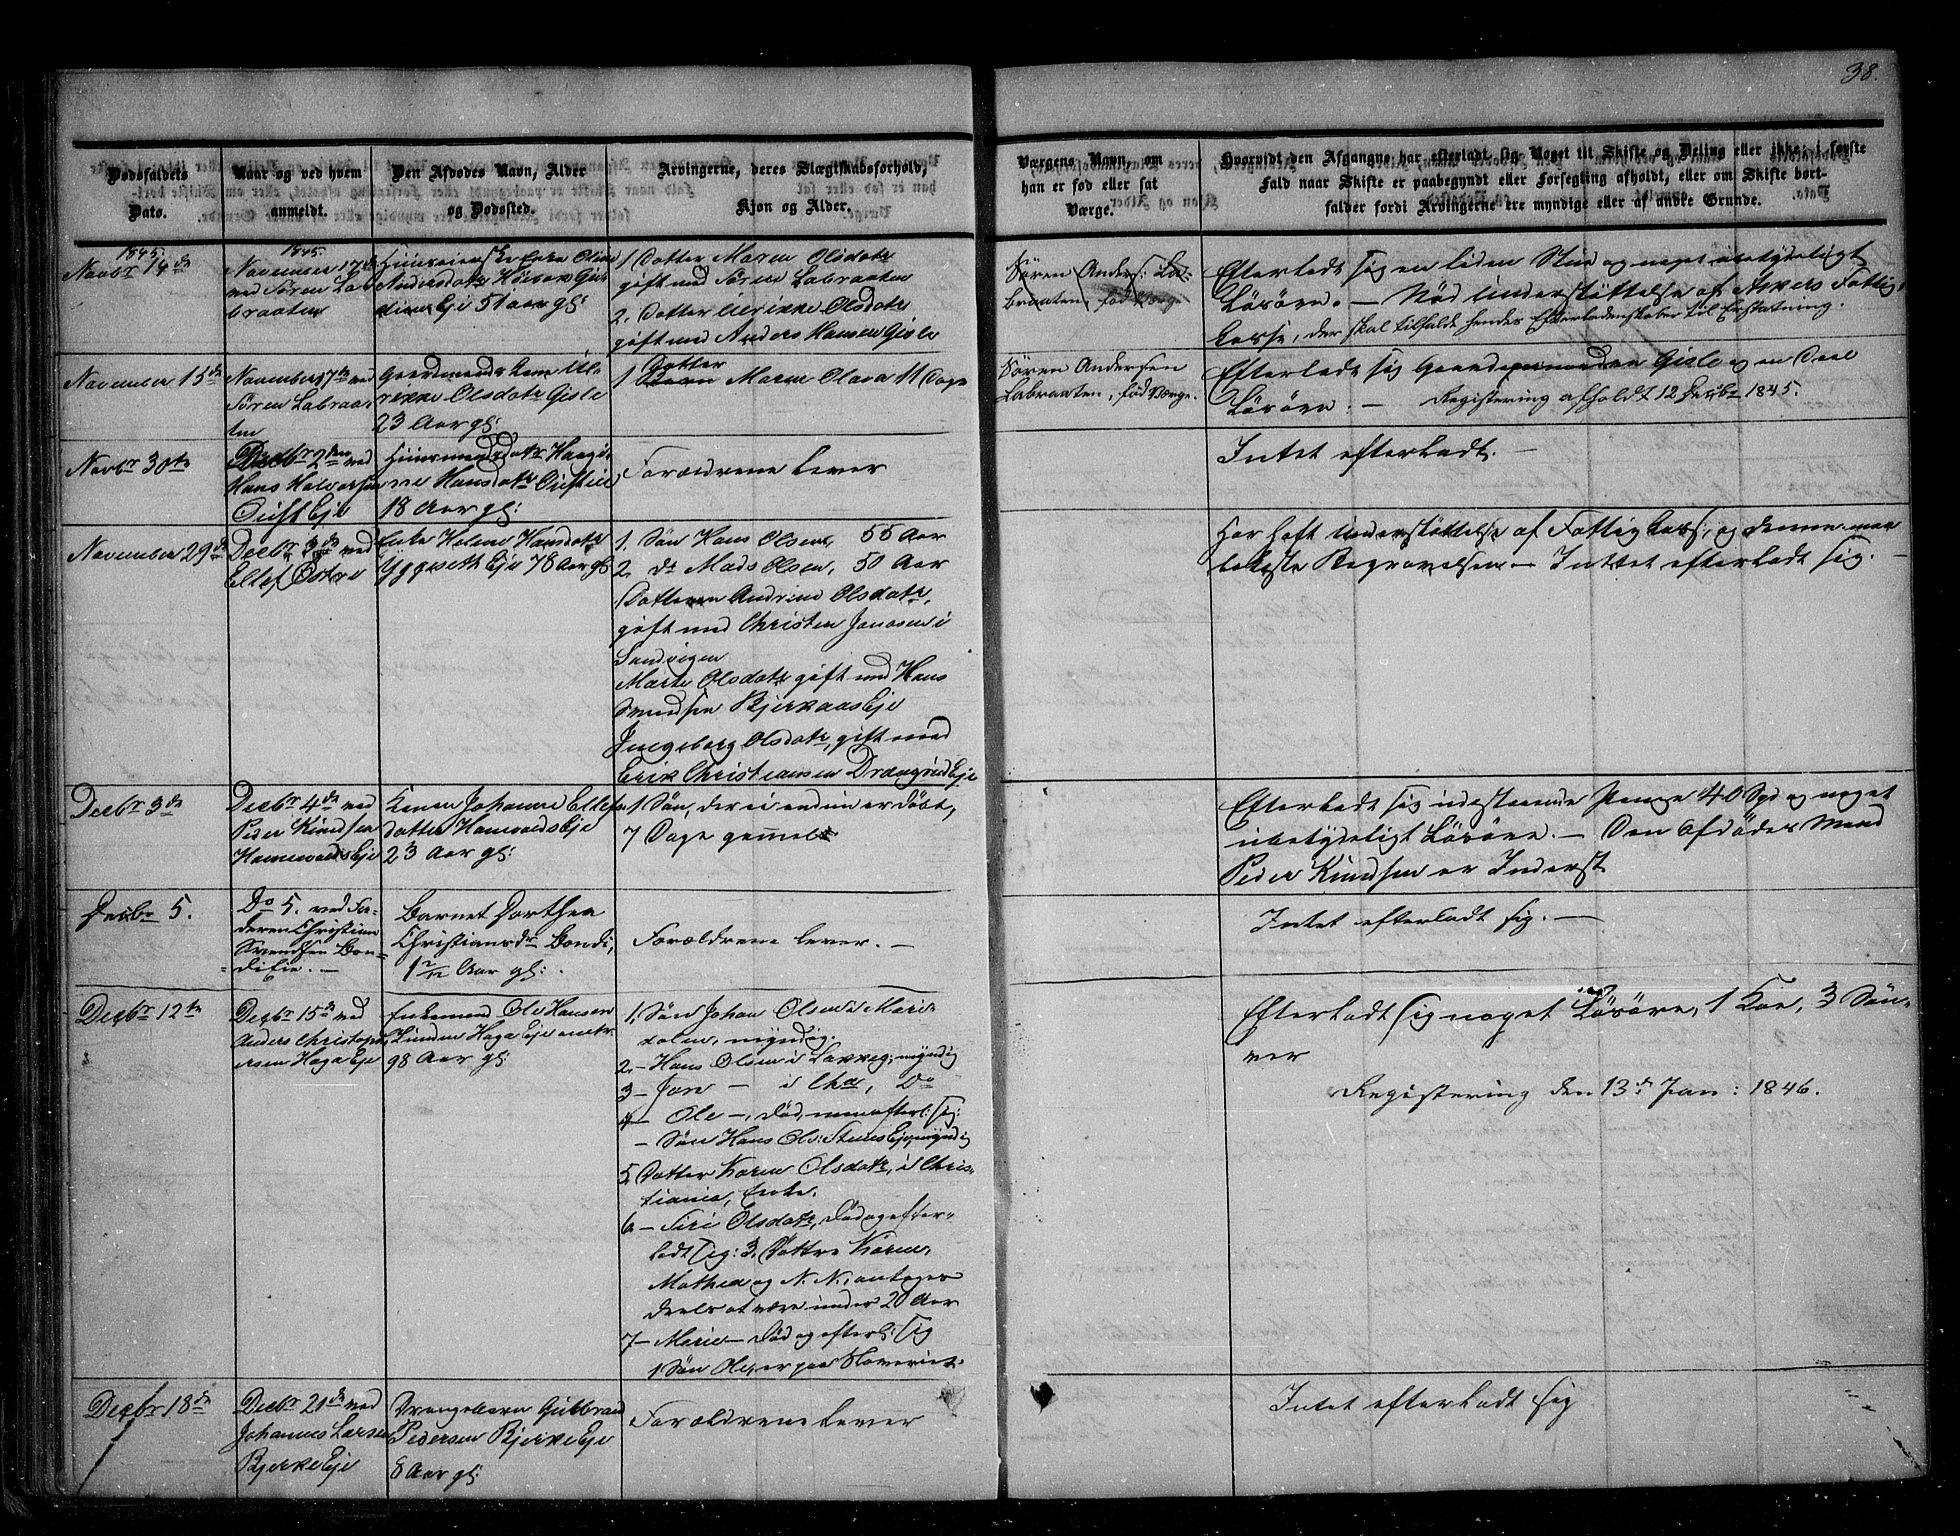 38.
Dødsfaldets
Dato.
Naar og ved hvem
anmeldt.
Den Afdødes Navn, Alder
og Dødssted.
Arvingerne, deres Slægtskabsforhold,
Kjøn og Alder.
Værgens Navn, om
han er fød eller sat
Værge.
Hvorvidt den Afgangne har efterladt sig Noget til Skifte og Deling eller ikke; i første
Fald naar Skifte er paabegyndt eller Forsegling afholdt, eller om Skifte bort-
falder fordi Arvingerne ere myndige eller af andre Grunde.
1845.
Novbr 14de
1845.
November 17de
ved Søren Lab
braaten
Huuseierske Enke
Andersdatr
Eje 51 aar gl:
1 Datter Maren Olsdatr
gift med Søren Labraaten
2. Datter Ulrikke Olsdatr
gift med Anders Hansen Gisle
Søren Anders: La-
braaten, fød Værge
Efterladt sig en liden Stue og noget ubetydeligt
Løsøre. — Nød Understøttelse af Askers Fattig-
kasse, der skal tilfalde hendes Efterladenskaber til Erstatning.
November 15de
November 17de ved
Søren Labraa-
ten
Gaardmandskone Ul-
rikke Olsdatr Gisle
23 Aar gl:
Datter
1 Maren Olava 11 Dage
Søren Andersen
Labraaten, fød Værge.
Efterladt sig Gaardparten Gisle og en Deel
Løsøre. — Registering afholdt 12 Decbr 1845.
Novbr 30te
Decbr 2den ved
Hans Halvorsen
Eje
Huusmandsdatr
Hansdatr
18 Aar gl:
Forældrene lever
Intet efterladt. —
November 29de
Decbr 3de ved
Ellef Østre
Enke Helene Hansdatr
Yggeseth Eje 78 Aar gl
1. Søn Hans Olsen, 55 Aar
2. do Mads Olsen, 50 Aar
Datteren Andrine Olsdatr,
gift med Christen Jonasen i
Sandvigen
Marte Olsdatr gift med Hans
Svendsen Bjerkaas Eje
Ingeborg Olsdatr, gift med
Erik Christiansen Drængsrud Eje
Har haft Understøttelse af Fattigkass: og denne maa
bekoste Begravelsen — Intet efterladt sig. —
Decbr 3de
Decbr 4de ved
Peder Knudsen
Hannevolds Eje
Konen Johanne Ellefs
datter Hannevolds Eje
23 Aar gl:
1 Søn, der ei endnu er døbt,
7 Dage gammel
Efterladt sig udestaaende Penge 40 Spd og noget
ubetydeligt Løsøre. — Den Afdødes Mand
Peder Knudsen er Inderst
Decbr 5.
Do 5. ved Fa-
deren Christian
Svendsen Bon-
di Eie. —
Barnet Dorthea
Christiansdr Bondi,
1 2/12 Aar gl:.
Forældrene lever. —
Intet efterladt sig. —
Decbr 12te
Decbr 15de ved
Anders Christoph-
ersen Haga Eje
Enkemand Ole Hansen
Linden Haga Eje omtr
98 Aar gl:
1, Søn Johan Olsen i Mari-
dalen, myndig.
2 — Hans Olsen i myndig
3 — Jon — i Cha, Do
4 — Ole —, død, men efterl: sig:
— Søn Hans Ols: Eje, myndig
5 Datter Karen Olsdatr, i Chris-
tiania, Enke.
6 — Siri Olsdatr, død og efter-
ladt sig: 3 Døttre Karen,
Mathea og N. N., antages
deels at være under 20 Aar
7 — Marie — død og efterl: sig
1 Søn Ole, er paa Slaveriet.
Efterladt sig noget Løsøre, 1 Koe, 3 Søu-
er
Registering den 13de Jan: 1846.
Decbr 18de
Decbr 21de ved
Johannes Larsen
Bjerke Eje
Drengebarn Gulbrand
Pedersen Bjerke Eje
8 Aar gl:
Forældrene lever
Intet efterladt sig